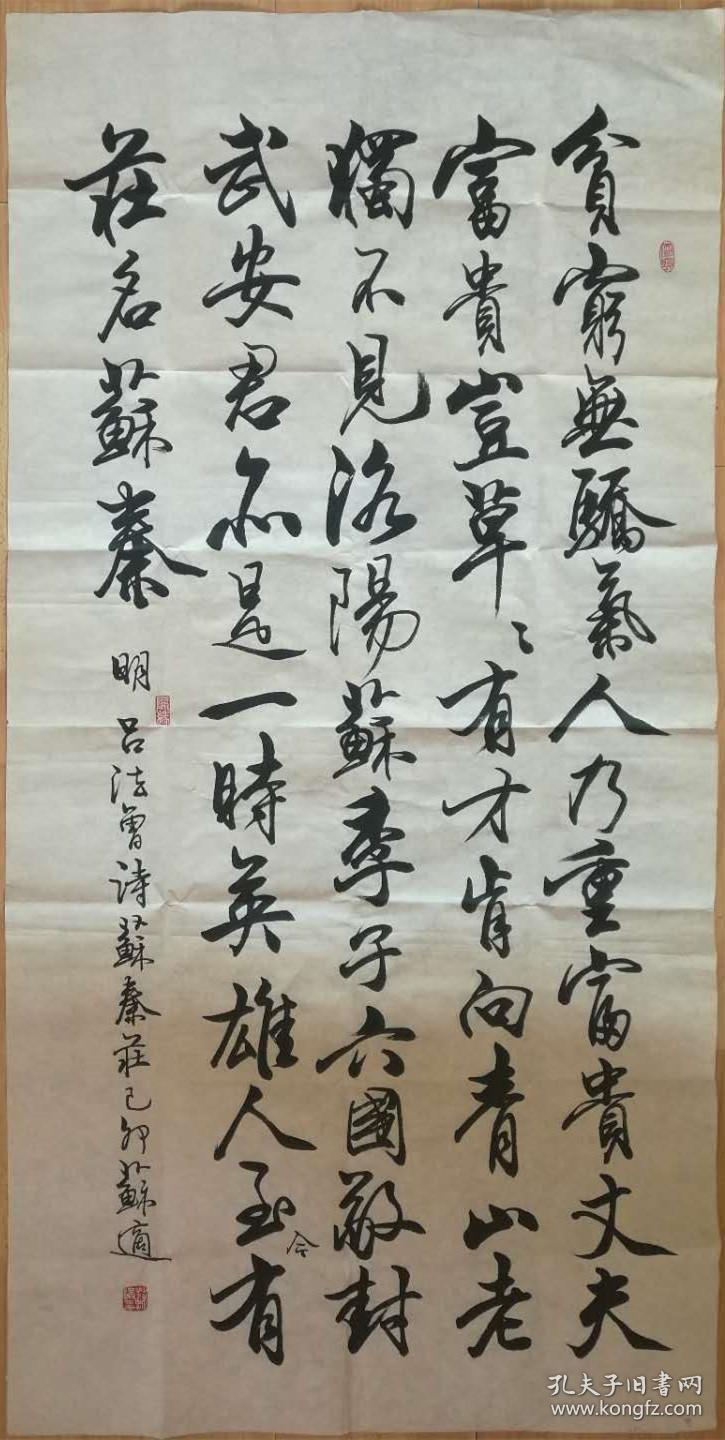 貧窮無驕氣人乃重富貴丈夫
富貴豈草〻有才肯向青山老
獨不見洛陽蘇季子六國敬封
武安君亦是一時英雄人至今有
莊名蘇秦
明呂法曾詩蘇秦莊己卯蘇適
孔夫子旧书网
www.kongfz.com